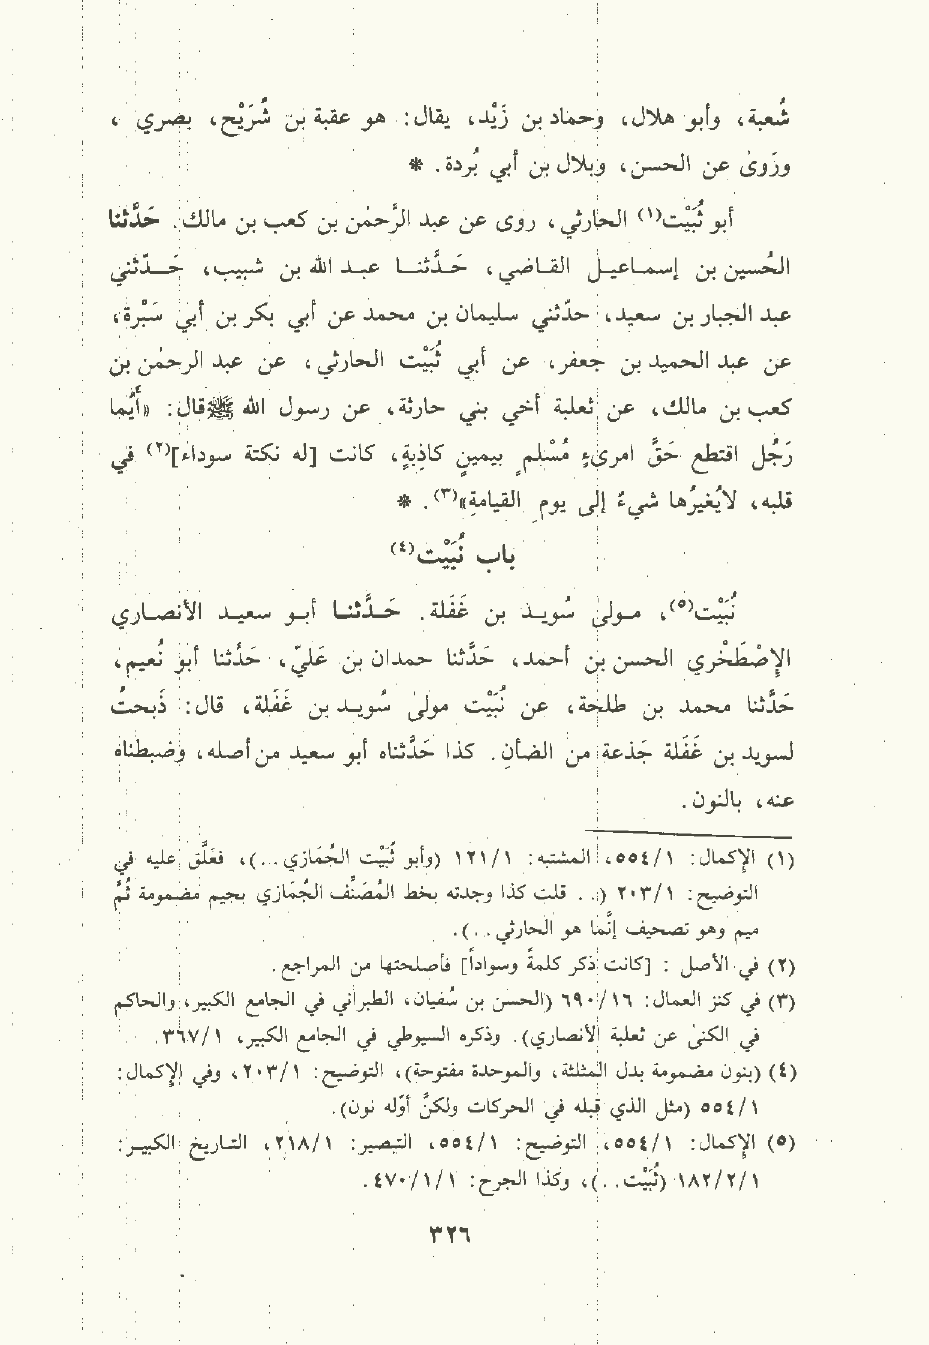 شُعبة، وأبو هلال، وحماد بن زَيْد، يقال: هو عقبة بن شُرَيْح، بصري،
ورَوىٰ عن الحسن، وبلال بن أبي بُردة. *
أبو ثُبَيْت(١) الحارثي، روى عن عبد الرَّحمٰن بن كعب بن مالك. حَدَّثنا
الحُسين بن إسماعيل القاضي، حَدَّثنا عبد الله بن شبيب، حَدّثني
عبد الجبار بن سعيد، حدّثني سليمان بن محمد عن أبي بكر بن أبي سَبْرة،
عن عبد الحميد بن جعفر، عن أبي ثُبَيْت الحارثي، عن عبد الرحمٰن بن
كعب بن مالك، عن ثعلبة أخي بني حارثة، عن رسول الله ﷺ قال: «أيُّما
رَجُل اقتطع حَقَّ امرىءٍ مُسْلم بيمينٍ كاذِبةٍ، كانت [له نكتة سوداء](٢) في
قلبه، لا يُغيرُها شيءُ إلى يوم القيامة»(٣). *
باب نُبَيْت(٤)
نُبَيْت(٥)، مولى سُويد بن غَفَلة. حَدَّثنا أبو سعيد الأنصاري
الإصْطَخْري الحسن بن أحمد، حَدَّثنا حمدان بن عَليّ، حَدَّثنا أبو نُعيم،
حَدَّثنا محمد بن طلحة، عن نُبَيْت مولىٰ سُويد بن غَفَلة، قال: ذَبحتُ
لسويد بن غَفَلة جَذعة من الضأن. كذا حَدَّثناه أبو سعيد من أصله، وضبطناه
عنه، بالنون.
(١) الإكمال: ٥٥٤/١، المشتبه: ١٢١/١ (وأبو ثُبَيْت الجُمَازي. .)، فَعَلَّق عليه في
التوضيح: ٢٠٣/١ (. . قلت كذا وجدته بخط المُصَنِّف الجُمَازي بجيم مضمومة ثُمَّ
ميم وهو تصحيف إنَّما هو الحارثي. .).
(٢) في الأصل : [كانت ذكر كلمةً واسواداً] فأصلحتها من المراجع.
(٣) في كنز العمال: ٦٩٠/١٦ (الحسن بن سُفيان، الطبراني في الجامع الكبير، والحاكم
في الكنىٰ عن ثعلبة الأنصاري). وذكره السيوطي في الجامع الكبير، ٣٦٧/١.
(٤) (بنون مضمومة بدل المثلثة، والموحدة مفتوحة)، التوضيح: ٢٠٣/١، وفي الإكمال:
٥٥٤/١ (مثل الذي قبله في الحركات ولكنَّ أوّله نون).
(٥) الإكمال: ٥٥٤/١، التوضيح: ٥٥٤/١، التبصير: ٢١٨/١، التاريخ الكبير:
١٨٢/٢/١ (ثُبَيْت. .)، وكذا الجرح: ٤٧٠/١/١.
٣٢٦